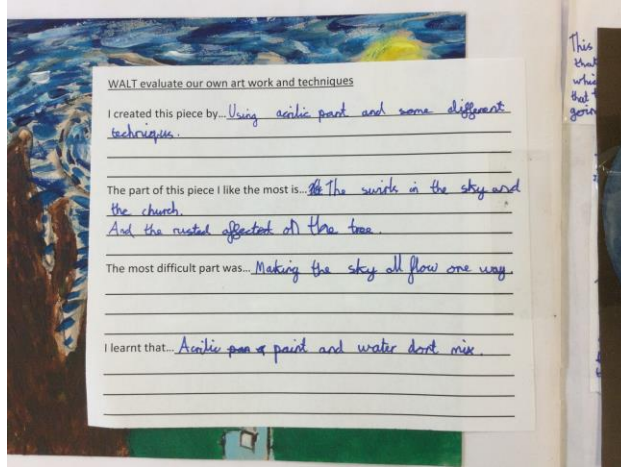 WALT evaluate our own art work and techniques
I created this piece by... Using acrilic pant and some different
techniques.
The part of this piece I like the most is... The swirls in the sky and
the church.
And the rusted affected on the tree.
The most difficult part was... Making the sky all flow one way.
I learnt that... Acrilic paint and water dont mix.
This
that
whic
that
goin